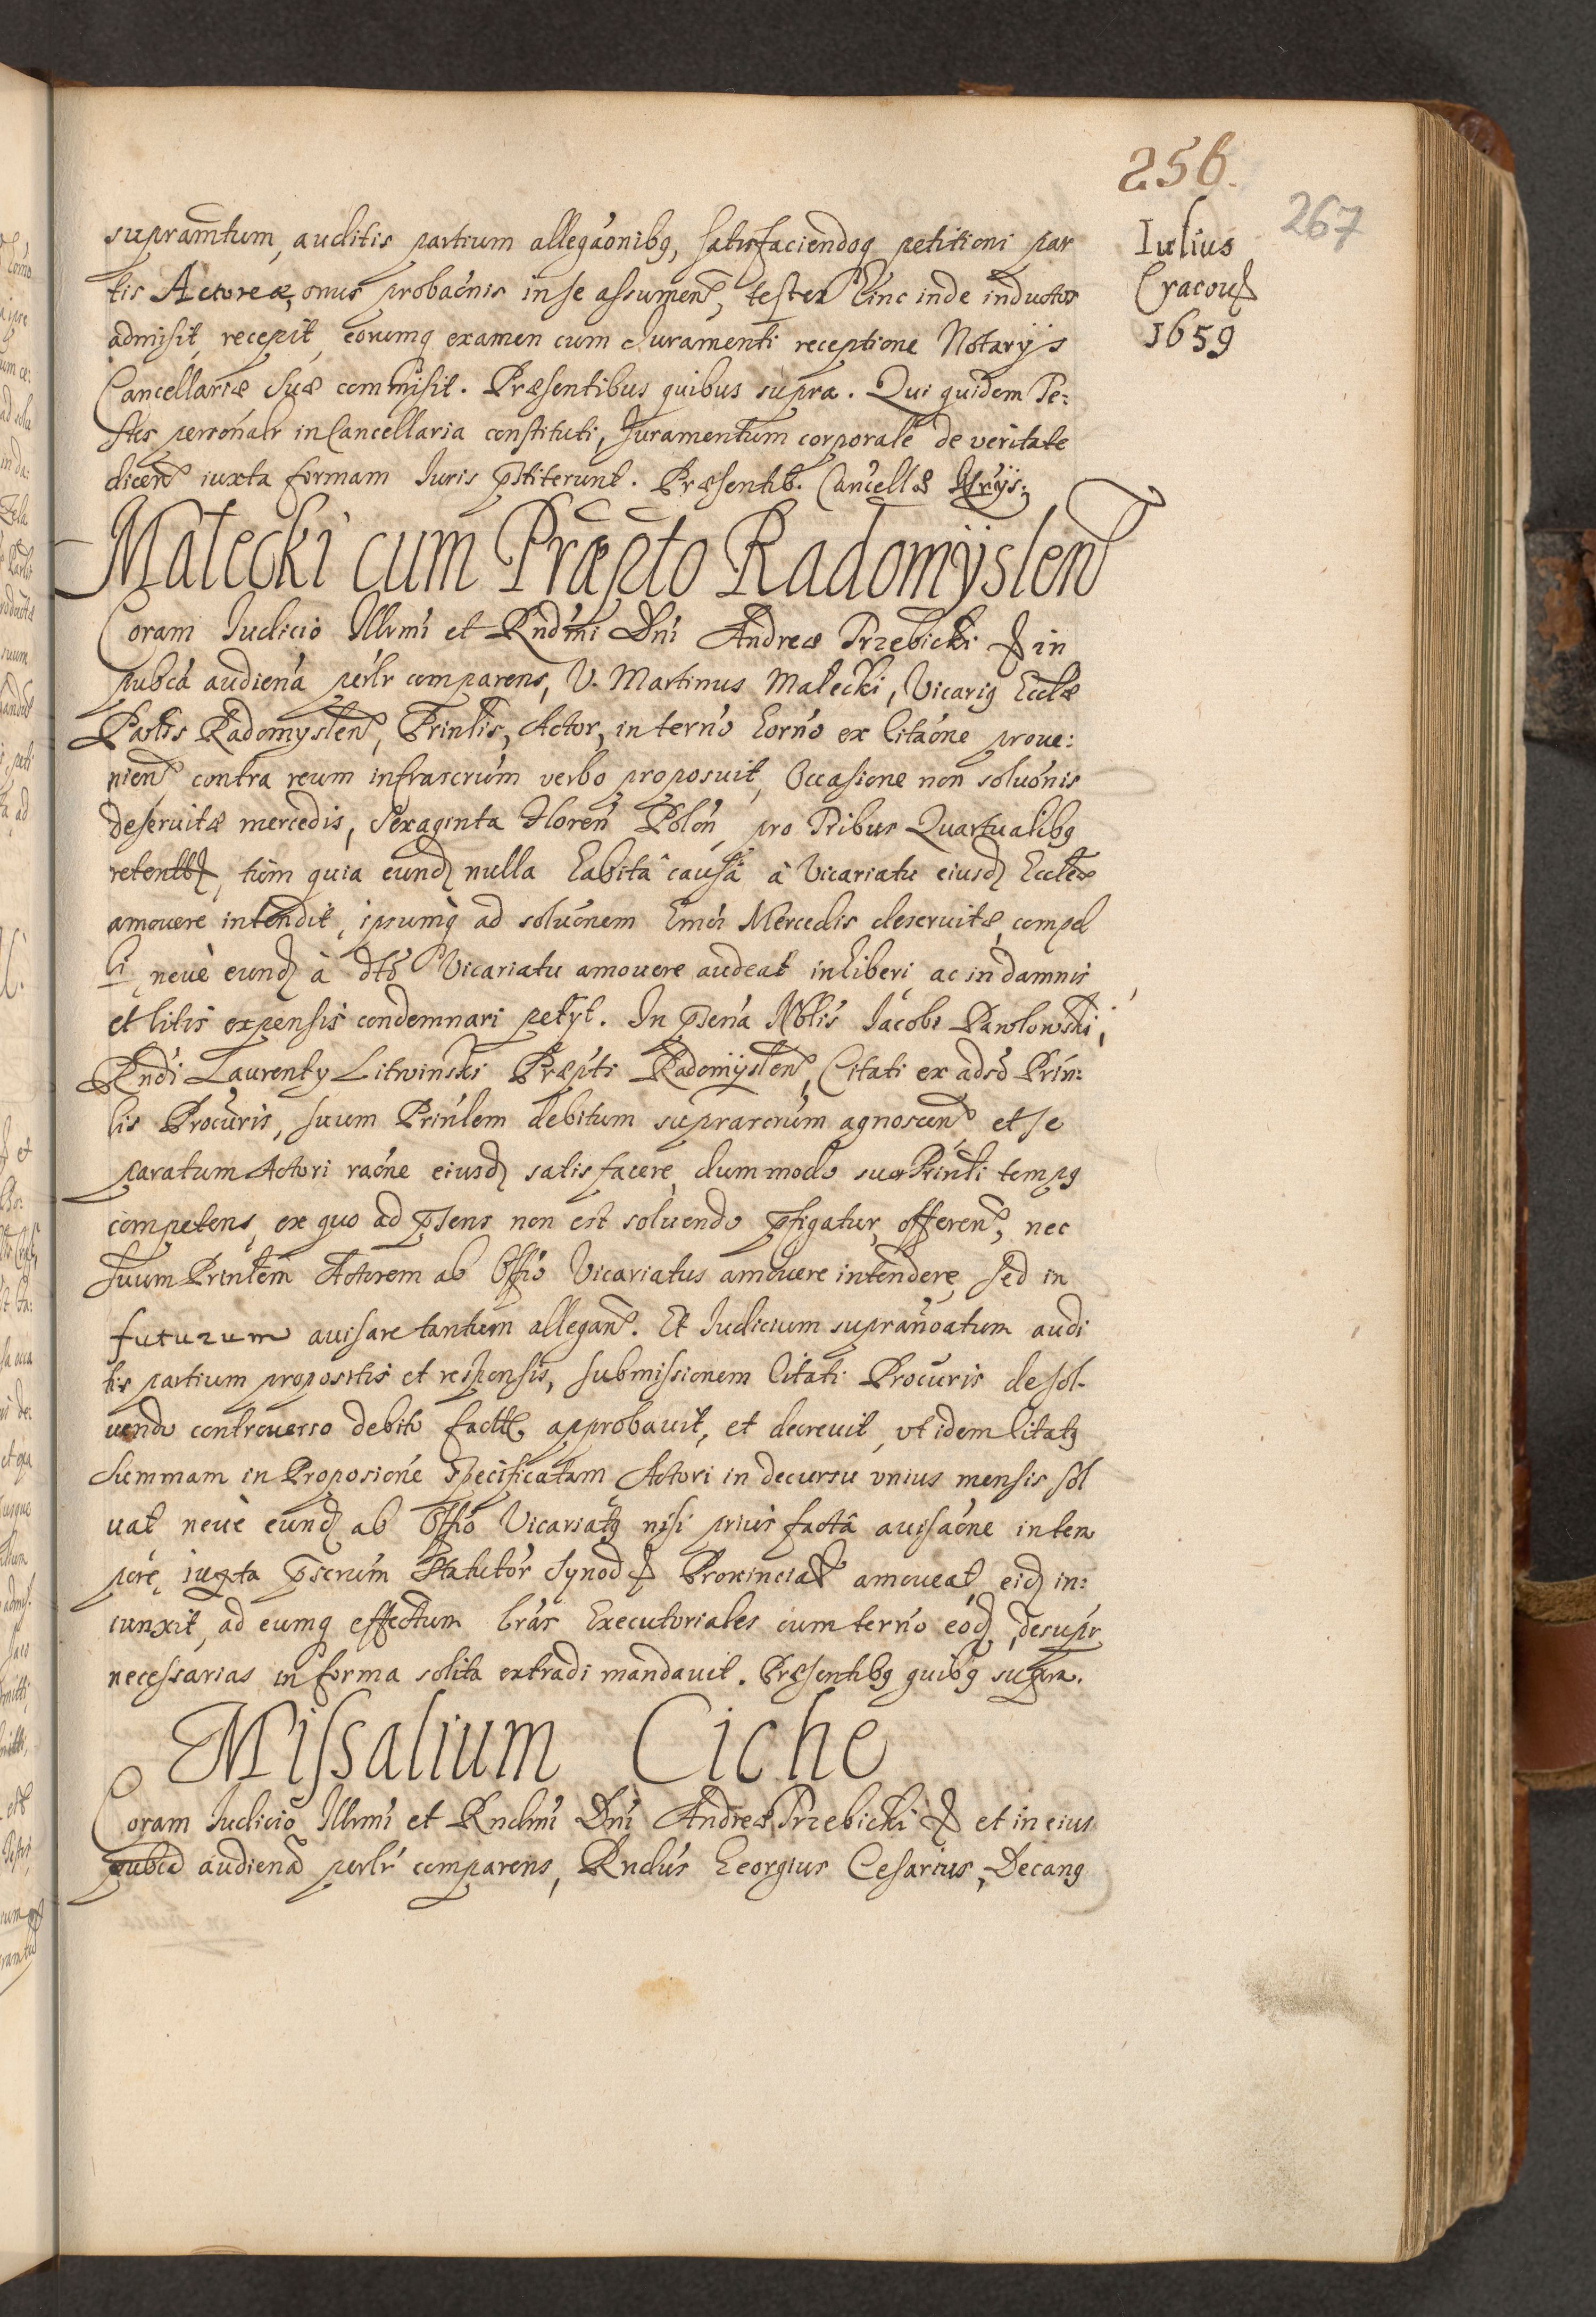 256.
267
Iulius
Cracoviæ
1659
supramtum, auditis partium allegaonibq, satisfaciendoq petitioni par
tis Actoreæ, onus probaonis in se assumen, testes hinc inde inductos
admisit, recepit, eorumq examen cum Iuramenti receptione Notarijs
Cancellariæ suæ commisit. Præsentibus quibus supra. Qui quidem Te:
stes personalr in Cancellaria constituti, Iuramentum corporale de veritate
dicen iuxta formam Iuris pstiterunt. Præsentib. Cancellæ
Małecki cum Præpto Radomÿslen
Coram Iudicio Illrmi et Rndmi Dni Andreæ Trzebicki & in
pubca audiena perlr comparens, V. Martinus Małecki, Vicariq Eccłæ
Parlis Radomyslen, Prinlis, Actor, in terno horno ex Citaone proue:
nien contra reum infrascrum verbo proposuit, Occasione non soluonis
deseruitæ mercedis, sexaginta Floren Polon, pro Tribus Quartualibq
retent, tum quia eund nulla habitâ causâ à Vicariatu eiusd Eccłæ
amouere intendit, ipsumq ad soluonem hmoi Mercedis deseruitæ, compel
li, neuè eund à dto Vicariatu amouere audeat inhiberi, ac in damnis
et litis expensis condemnari petyt. In psena Nblis Iacobi Pawlowski,
Rndi Laurenty Litwinski Præpti Radomÿslen, Citati ex adso Prin:
lis Procuris, suum Prinlem debitum suprascrum agnoscen, et se
paratum Actori raone eiusd satisfacere, dummodo suo Prinli tempq
competens, ex quo ad psens non est soluendo pfigatur, offeren, nec
suum Prinlem Actorem ab Offio Vicariatus amouere intendere, sed in
futurum auisare tantum allegan. Et Iudicium supranoatum audi
tis partium propositis et responsis, submissionem Citati Procuris de sol-
uendo controuerso debito fact approbauit, et decreuit, vt idem Citatq
summam in Proposione specificatam Actori in decursu vnius mensis sol
uat neuè eund ab Offio Vicariatq nisi prius factâ auisaone in tem
pore, iuxta pscrum Statutor Synod Prouincial amoueat, eid in:
iunxit, ad eumq effectum lras Executoriales cum terno eod, desupr
necessarias in forma solita extradi mandauit. Præsentibq quibq supra.
Missalium Ciche
Coram Iudicio Illrmi et Rndmi Dni Andreæ Trzebicki & et in eius
pubca audiena perlr comparens, Rndus Georgius Cesarius, Decanq